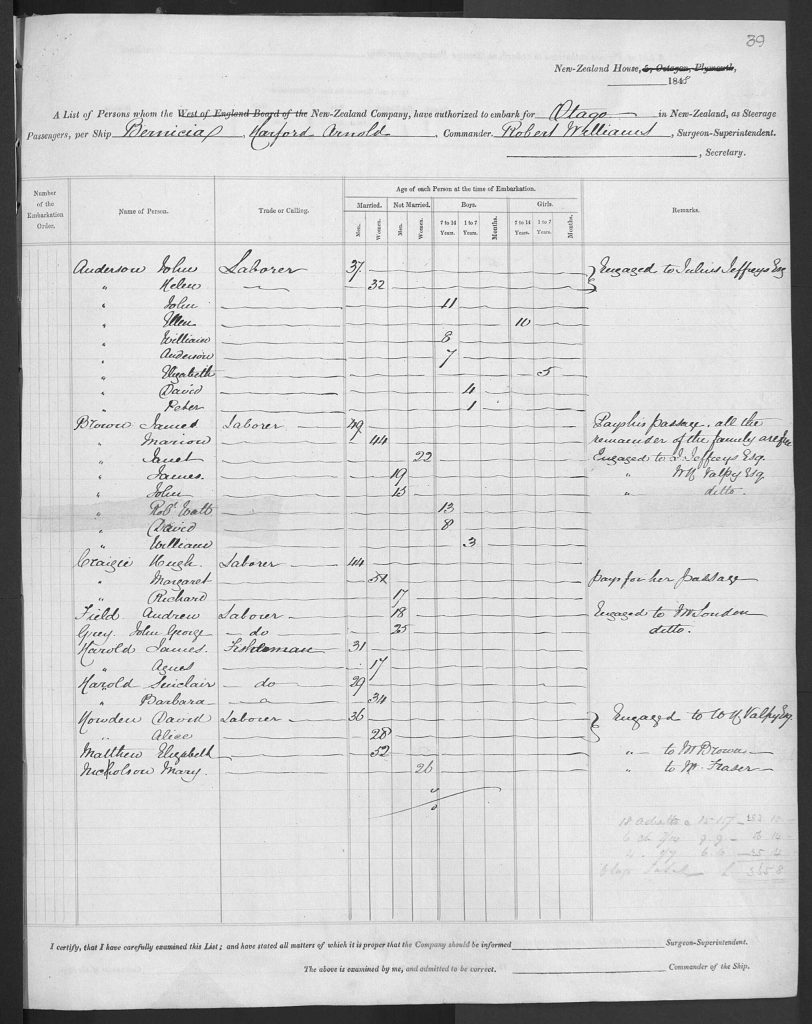 39
New-Zealand House, 5, Octagon, Plymouth,
1848
A List of Persons whom the West of England Board of the New-Zealand Company, have authorized to embark for Otago in New-Zealand, as Steerage
Passengers, per Ship Bernicia, Harford Arnold, Commander. Robert Williams, Surgeon-Superintendent.
, Secretary.
Number of the Embarkation Order.
Name of Person.
Trade or Calling.
Age of each Person at the time of Embarkation.
Remarks.
Married. Not Married. Boys. Girls.
Men. Women. Men. Women. 7 to 14 Years. 1 to 7 Years. Months. 7 to 14 Years. 1 to 7 Years. Months.
Anderson John Laborer 37 Engaged to Julius Jeffreys Esq
" Helen 32
" John 11
" Ellen 10
" William 8
" Anderson 7
" Elizabeth 5
" David 4
" Peter 1
Brown James Laborer 49 Pays his passage. all the
" Marion 44 remainder of the family are free
" Janet 22 Engaged to J Jeffreys Esq.
" James. 19 " W H Valpy Esq.
" John 15 " ditto.
" Robt Watt 13
" David 8
" William 3
Craigie Hugh. Laborer 44
" Margaret 52 pays for her passage
" Richard 17
Field Andrew Laborer 18 Engaged to
Grey John George do 25 ditto.
Harold James. Fisherman 31
" Agnes 17
Harold Sinclair do 29
" Barbara 34
Howden David Laborer 36 Engaged to W H Valpy Esq.
" Alice 28
Matthew Elizabeth 52 " to Mr Brown
Nicholson Mary. 26 " to Mr Fraser
18 Adults
I certify, that I have carefully examined this List; and have stated all matters of which it is proper that the Company should be informed Surgeon-Superintendent.
The above is examined by me, and admitted to be correct. Commander of the Ship.